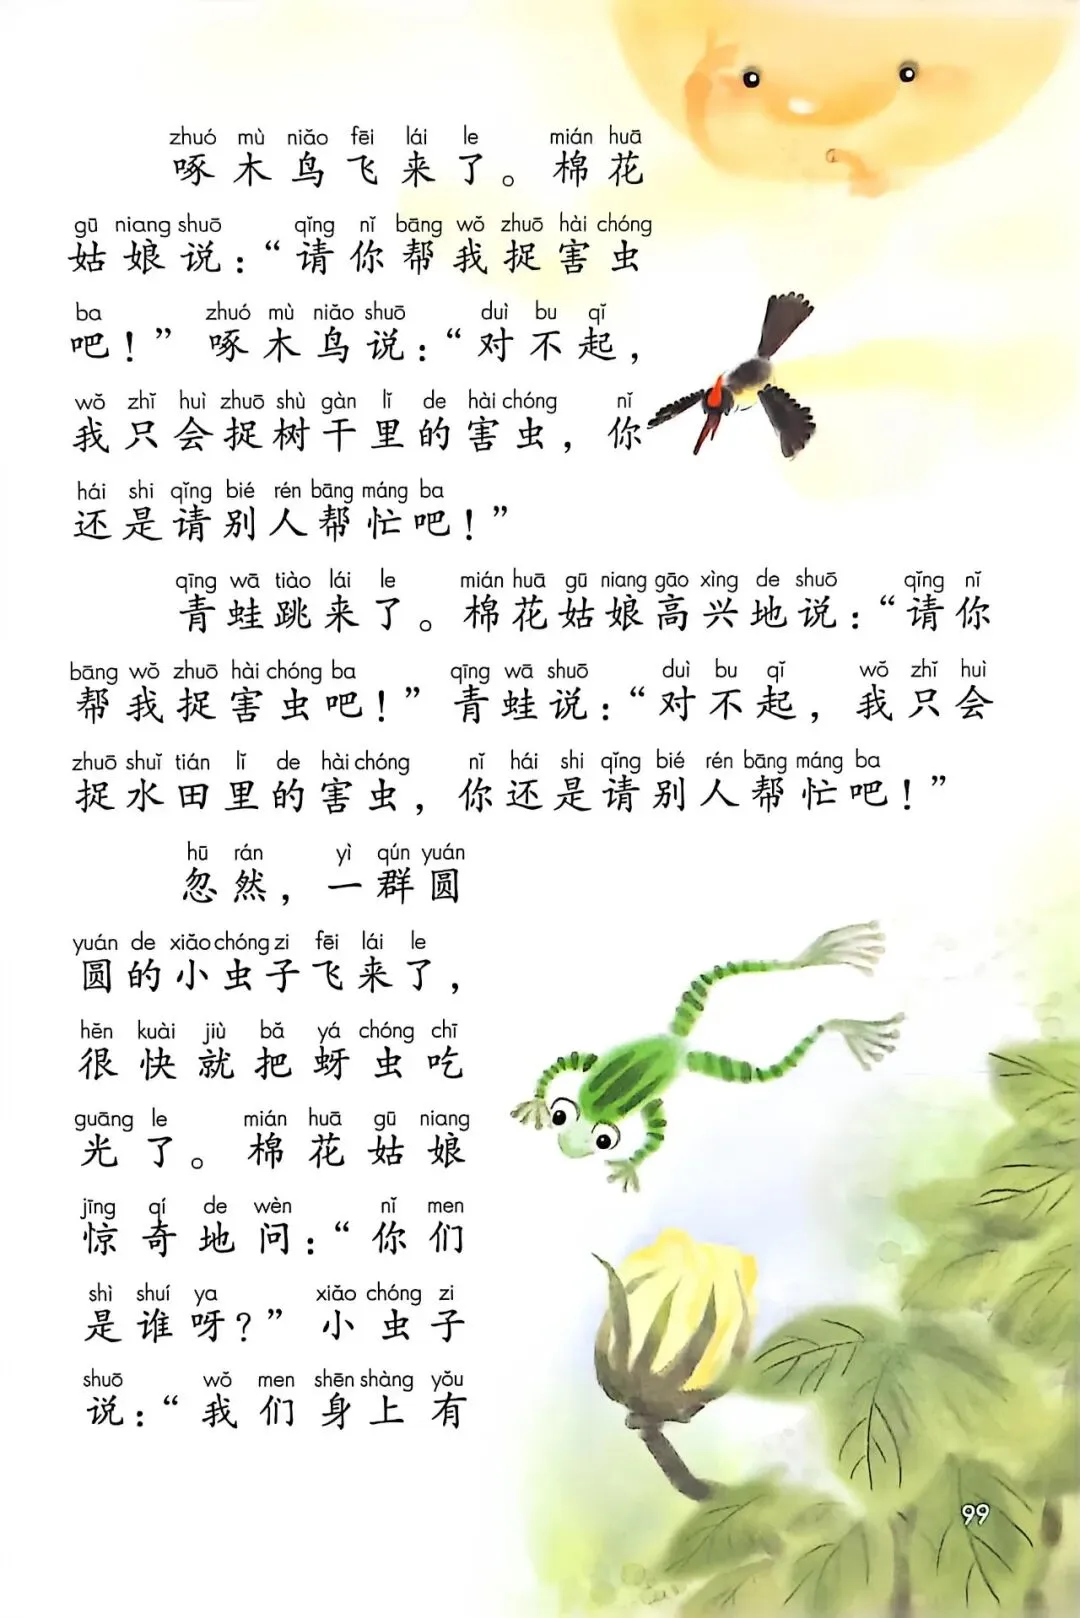 zhuó mù niǎo fēi lái le mián huā
啄木鸟飞来了。棉花
gū niang shuō qǐng nǐ bāng wǒ zhuō hài chóng
姑娘说：“请你帮我捉害虫
ba zhuó mù niǎo shuō duì bu qǐ
吧！”啄木鸟说：“对不起，
wǒ zhǐ huì zhuō shù gàn lǐ de hài chóng nǐ
我只会捉树干里的害虫，你
hái shi qǐng bié rén bāng máng ba
还是请别人帮忙吧！”
qīng wā tiào lái le mián huā gū niang gāo xìng de shuō qǐng nǐ
青蛙跳来了。棉花姑娘高兴地说：“请你
bāng wǒ zhuō hài chóng ba qīng wā shuō duì bu qǐ wǒ zhǐ huì
帮我捉害虫吧！”青蛙说：“对不起，我只会
zhuō shuǐ tián lǐ de hài chóng nǐ hái shi qǐng bié rén bāng máng ba
捉水田里的害虫，你还是请别人帮忙吧！”
hū rán yì qún yuán
忽然，一群圆
yuán de xiǎo chóng zi fēi lái le
圆的小虫子飞来了，
hěn kuài jiù bǎ yá chóng chī
很快就把蚜虫吃
guāng le mián huā gū niang
光了。棉花姑娘
jīng qí de wèn nǐ men
惊奇地问：“你们
shì shuí ya xiǎo chóng zi
是谁呀？”小虫子
shuō wǒ men shēn shàng yǒu
说：“我们身上有
99